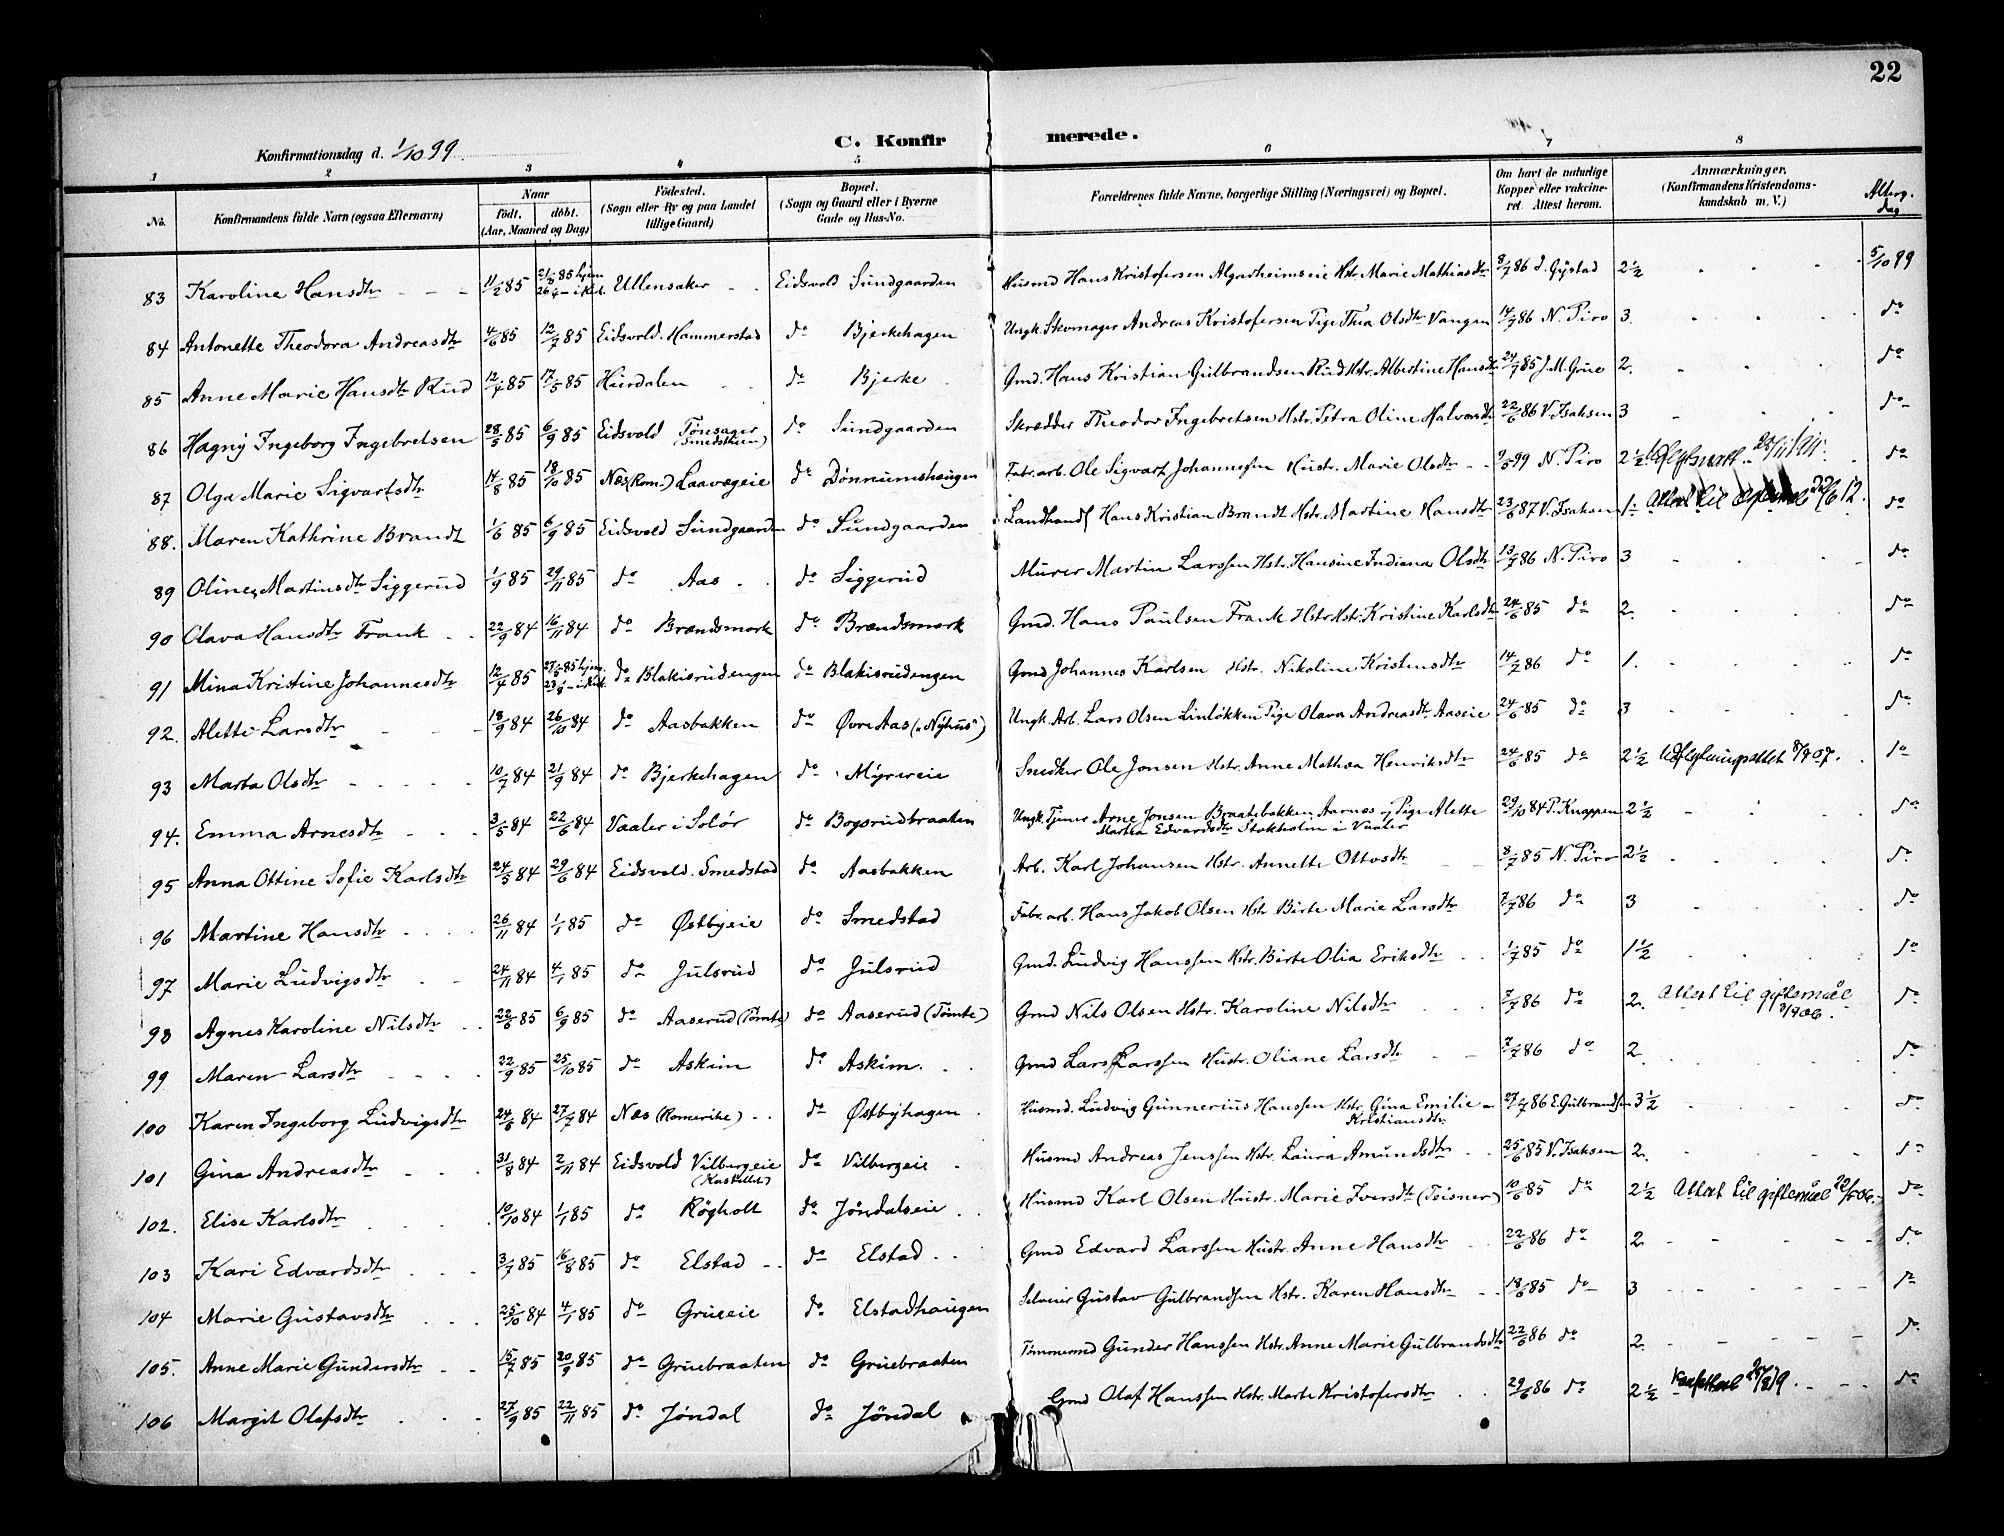 22
C. Konfirmerede.
Konfirmationsdag d. 1/10 99.
1 2 3 4 5 6 7 8
No. Konfirmandens fulde Navn (ogsaa Efternavn) Naar født, døbt. (Aar, Maaned og Dag) Fødested. (Sogn eller By og paa Landet tillige Gaard) Bopæl. (Sogn og Gaard eller i Byerne Gade og Hus-No. Forældrenes fulde Navne, borgerlige Stilling (Næringsvei) og Bopæl. Om havt de naturlige Kopper eller vaccineret. Attest herom. Anmerkninger. (Konfirmandens Kristendomskundskab m. V.) Alterg. dag
83 Karoline Hansdtr 11/2 85 21/3 85 hjem. 26/4 - i Kirk. Ullensaker Eidsvold Sundgaarden Husmd Hans Kristofersen Algarheimseie Hstr. Marie Mathiasdtr 8/7 86 d. Gystad 2 1/2 5/10 99
84 Antonette Theodora Andreasdtr 4/6 85 12/7 85 Eidsvold. Hammerstad do Bjerkehagen Ungk. Skomager Andreas Kristofersen Pige Thea Olsdtr Vangen 14/7 86 N. Piro 3. do
85 Anne Marie Hansdtr Rud 12/4 85 17/5 85 Hurdalen do Bjerke Gmd. Hans Kristian Gulbrandsen Rud Hstr. Albertine Hansdtr 24/7 85 J. M. Grue 2. do
86 Hagny Ingeborg Ingebretsen 28/5 85 6/9 85 Eidsvold Tønsager (Smedstuen) do Sundgaarden Skrædder Theodor Ingebretsen Hstr. Petra Oline Halvorsdtr 22/6 86 V. Isaksen 3 do
87 Olga Marie Sigvartsdtr 17/8 85 18/10 85 Næs (Rom.) Laavegeie do Dønnumshaugen Fabr. arb. Ole Sigvart Johannessen Hustr. Marie Olsdtr 9/5 99 N. Piro 2 1/2 do
88. Maren Kathrine Brandt 1/6 85 6/9 85 Eidsvold Sundgaarden do Sundgaarden Landhandl Hans Kristian Brandt Hstr. Martine Hansdtr 23/6 87 V. Isaksen 1- Attest til 22/6 12. do
89 Oline Martinsdtr Siggerud 1/9 85 29/11 85 do Aas do Siggerud Murer Martin Larssen Hstr. Hansine Indiana Olsdtr 13/7 86 N. Piro 3 do
90 Olava Hansdtr Frank 22/9 84 16/11 84 do Brændsmork do Brændsmork Gmd. Hans Paulsen Frank Hstr. Kristine Karlsdtr 24/6 85 do 2. do
91 Mina Kristine Johannesdtr 12/4 85 85 hjem. - i Kirk. do Blakisrudengen do Blakisrudengen Gmd Johannes Karlsen Hstr. Nikoline Kristensdtr 14/7 86 do 1. do
92. Alette Larsdtr 18/9 84 26/10 84 do Aasbakken do Øvre Aas („Nyhus") Ungk. Arb. Lars Olsen Linløkken Pige Olava Andreasdtr Aaseie 24/6 85 do 3 do
93 Marta Olsdtr 10/7 84 21/9 84 do Bjerkehagen do Myrereie Snedker Ole Jonsen Hstr. Anne Mathea Henriksdtr 24/6 85 do 2 1/2 Udflytningsattest 8/9 07. do
94. Emma Arnesdtr 3/5 84 22/6 84 Vaaler i Solør do Bogsrudbraaten Ungk. Tjener Arne Jonsen Braatebakken, Aarnes og Pige Alette Martha Edvardsdtr Stokholm i Vaaler 29/10 84 P. Knappen 2 1/2 do
95 Anna Ottine Sofie Karlsdtr 24/5 84 29/6 84 Eidsvold. Smedstad do Aasbakken Arb. Karl Johansen Hstr. Annette Ottosdtr 8/7 85 N. Piro 2 1/2 do
96 Martine Hansdtr 26/11 84 1/1 85 do Østbyeie do Smedstad Fabr. arb. Hans Jakob Olsen Hstr. Birte Marie Larsdtr 7/7 86 do 3 do
97 Marie Ludvigsdtr 24/11 84 4/1 85 do Julsrud do Julsrud Gmd. Ludvig Hanssen Hstr. Birte Olia Eriksdtr 1/7 85 do 1 1/2 do
98 Agnes Karoline Nilsdtr 22/6 85 6/9 85 do Aaserud (Tømte) do Aaserud (Tømte) Gmd Nils Olsen Hstr. Karoline Nilsdtr 7/7 86 do 2. Attest til giftemaal 3/9 06. do
99 Maren Larsdtr 22/9 85 25/10 85 do Askim do Askim. Gmd Lars Larssen Hustr. Oliane Larsdtr 7/7 86 do 2. do
100 Karen Ingeborg Ludvigsdtr 24/6 84 27/7 84 Næs (Romerike) do Østbyhagen Husmd. Ludvig Gunnerius Hanssen Hstr. Gina Emilie Kristiansdtr 27/7 86 E. Gulbrandsen 3 1/2 do
101 Gina Andreasdtr 31/8 84 2/11 84 Eidsvold Vilbergeie (Kastellet) do Vilbergeie Husmd Andreas Jenssen Hstr. Laura Amundsdtr 25/6 85 V. Isaksen 2. do
102. Elise Karlsdtr 10/10 84 1/1 85 do Røgholt do Jøndalseie Husmd Karl Olsen Hustr. Marie Iversdtr (Teisner) 10/6 85 do 2 1/2 Attest til giftemaal 22/5 06. do
103 Kari Edvardsdtr 3/7 85 16/8 85 do Elstad do Elstad Gmd Edvard Larssen Hustr. Anne Hansdtr 22/6 86 do 2 do
104 Marie Gustavsdtr 25/10 84 4/1 85 do Grueeie do Elstadhaugen Selveier Gustav Gulbrandsen Hstr. Karen Hansdtr 18/6 85 do 3 do
105. Anne Marie Gundersdtr 15/7 85 20/9 85 do Gruebraaten do Gruebraaten Tømmermd Gunder Hanssen Hstr. Anne Marie Gulbrandsdtr 22/6 86 do 2. do
106 Margit Olafsdtr 27/9 85 22/11 85 do Jøndal do Jøndal Gmd Olaf Hanssen Hstr. Marte Kristofersdtr 29/6 86 do 2 1/2 do